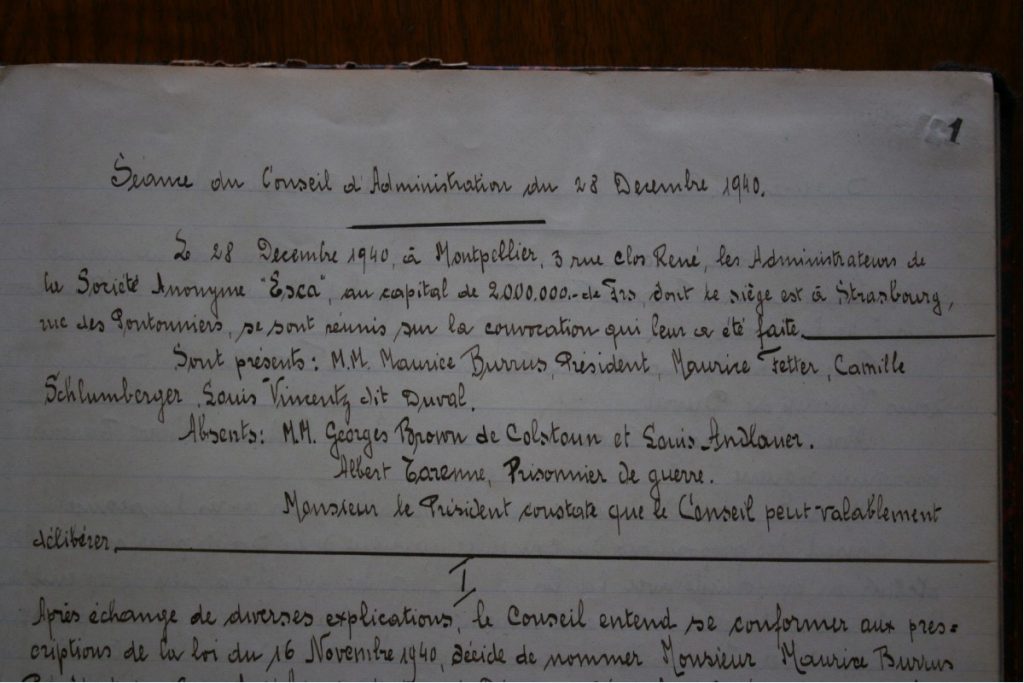 1
Séance du Conseil d'Administration du 28 Decembre 1940.
Le 28 Decembre 1940, à Montpellier, 3 rue Clos René, les Administrateurs de
la Société Anonyme "Esca", au capital de 2.000.000.- de Frs, dont le siège est à Strasbourg,
rue des Pontonniers, se sont réunis sur la convocation qui leur a été faite.
Sont présents: M.M. Maurice Burrus, Président, Maurice Fetter, Camille
Schlumberger, Louis Vincentz dit Duval.
Absents: MM. Georges Brown de Colstoun et Louis Andlauer.
Albert Tarenne, Prisonnier de guerre.
Monsieur le Président constate que le Conseil peut valablement
délibérer.
I
Après échange de diverses explications, le Conseil entend se conformer aux pres=
criptions de la loi du 16 Novembre 1940, décide de nommer Monsieur Maurice Burrus